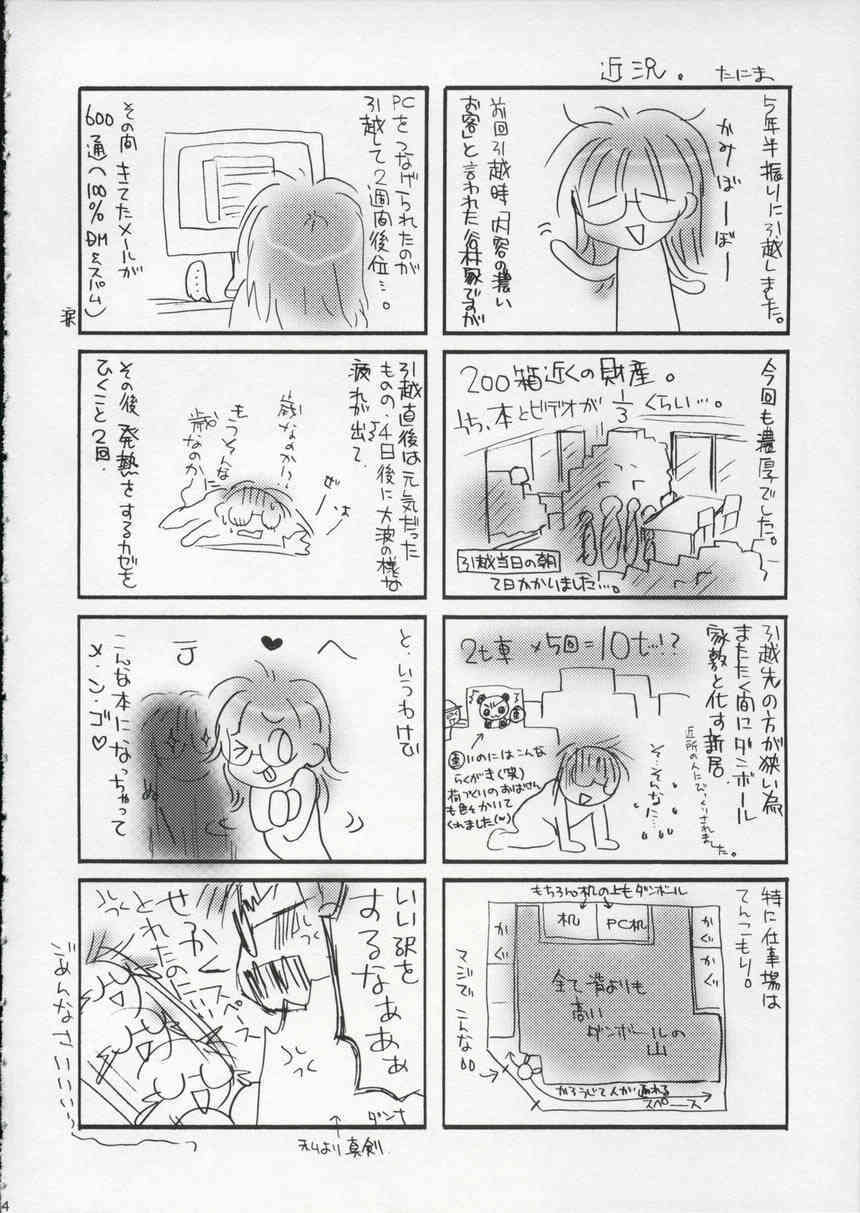 近況。 たにま
5年半振りに引越しました。
かみぼーぼー
前回引越時「内容の濃い
お客」と言われた谷林家ですが
今回も濃厚でした。
200箱近くの財産。
うち、本とビデオが1/3くらい…。
引越当日の朝
2日かかりました…。
引越先の方が狭い為
またたく間にダンボール
家敷と化す新居。
近所の人にびっくりされました。
2t車×5回=10t…!?
そ…そんなに…
いのにはこんな
らくがき(笑)
荷づくりのおばけさん
も色々かいて
くれました(^^)
特に仕事場は
てんこもり。
もちろん机の上もダンボール
机
PC机
かぐ
かぐ
かぐ
全て背よりも
高い
ダンボールの
山
マジで こんな。
かろうじて人が通れる
スペース
PCをつなげられたのが
引越して2週間後位…。
その間きてたメールが
600通(100%DM&スパム)
涙
引越直後は元気だった
ものの、4日後に大波の様な
疲れが出て、
歳なのか!?
もうそんな
歳なのか
ぜ
は
その後発熱をするカゼを
ひくこと2回。
と、いうわけで
♥
こんな本になっちゃって
メ・ン・ゴ♡
いい訳を
するなぁぁぁ
せっかくスペース
とれたのにぃ
ごめんなさいいいぃっ
ダンナ
私より真剣
4